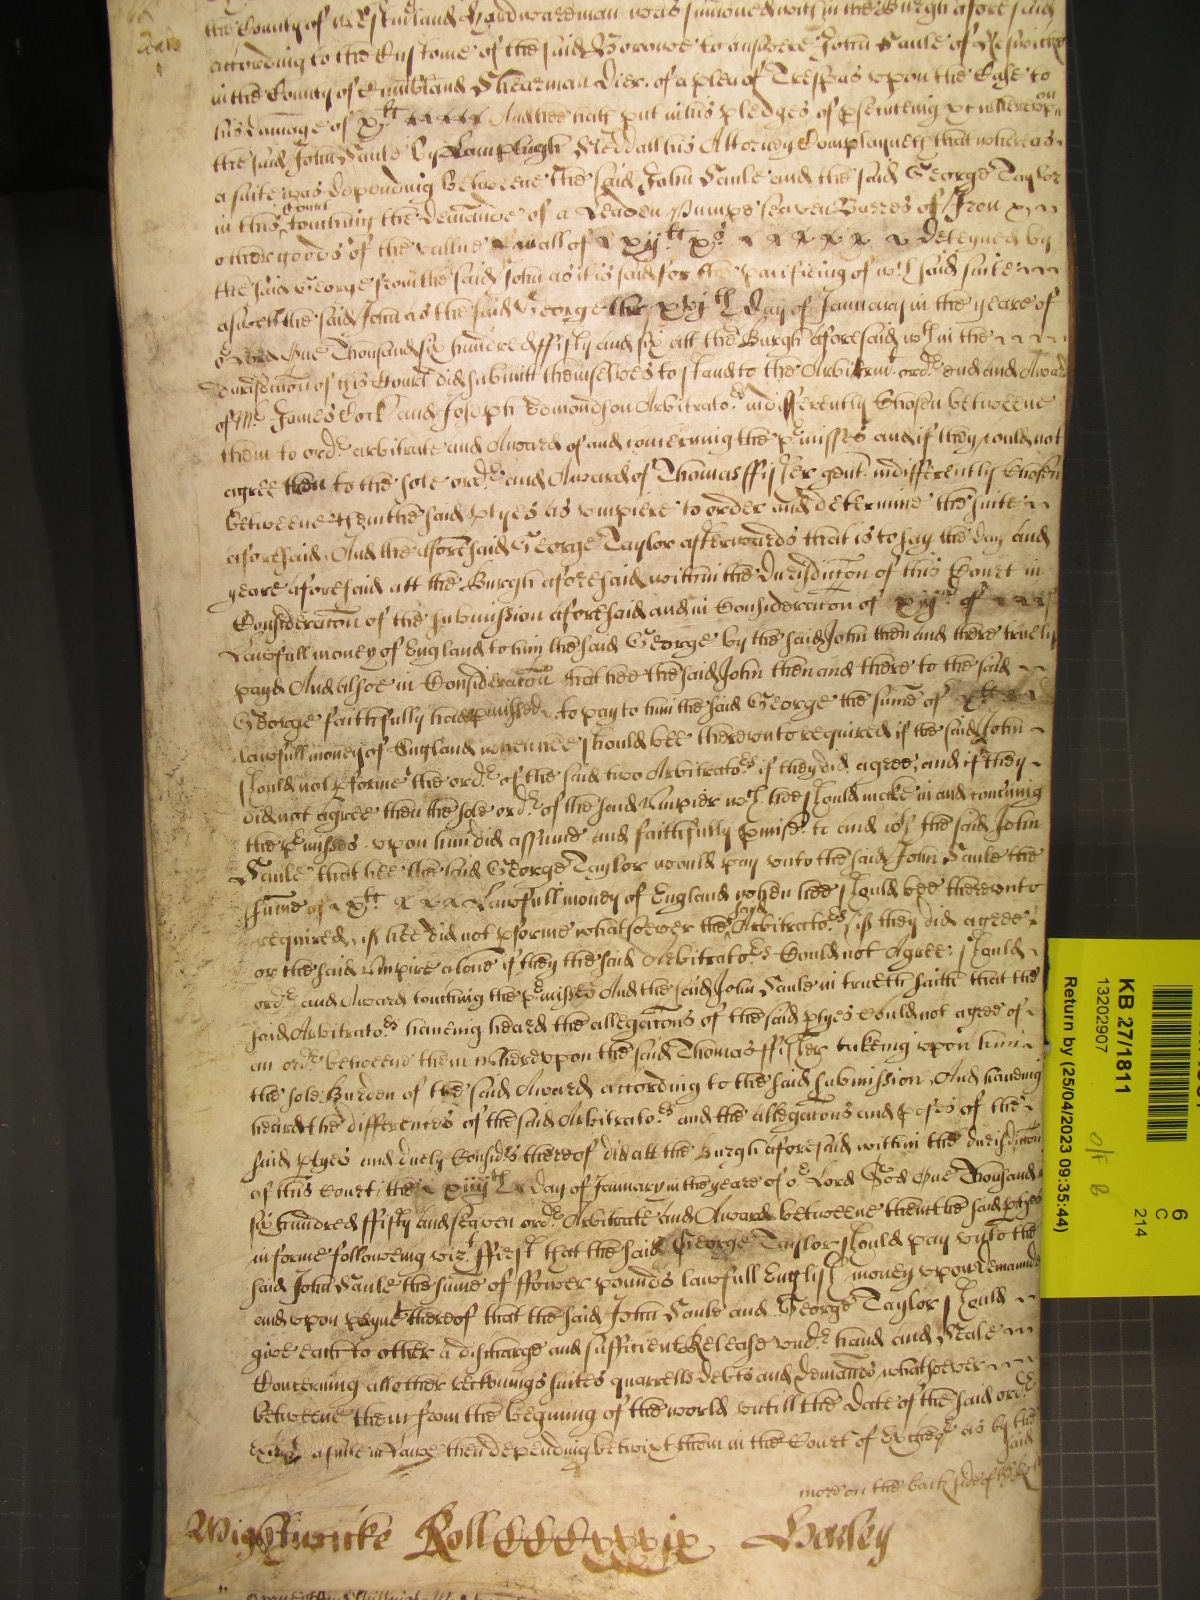 the County of Westmerland Hardwareman was sumoned with in the Burgh afore said
according to the Custome of the said Borowe to answere John Saule of Keswicke
in the County of Cumbland Shearman Dier of a plea of Trespas upon the Case to
his damage of xxli And hee hath put in his pledges of psecuteing &c whereupon
the said John Saule by Lamplugh his Attorney Complayneth that whereas
a suite was depending betweene the said John Saule and the said George Taylor
in this Court touching the demande of a Leaden Pumpe seaven Barres of Iron &
other goods of the vallue in all of xs deteyned by
the said George from the said John as it is said for the pacifieing of wch said suite
aswell the said John as the said George the xvjth day of January in the yeare of
or Lord One Thousand six hundred ffifty and six att the Burgh aforesaid wth in the
Jurisdiccon of this Court did submitt themselves to stand to the Arbitrmt ordr end and Award
of Mr James Cock and Joseph Edmondson Arbitrators indifferently Chosen betweene
them to ordr arbitrate and Award of and concerning the pmisses and if they could not
agree then to the sole ordr and Award of Thomas ffisher gent indifferently Chosen
betweene them the said ptyes as umpiere to order and determine the suite
aforesaid. And the aforesaid George Taylor afterwards that is to say the day and
yeare aforesaid att the Burgh aforesaid within the Jurisdiccon of this Court in
Consideracon of the submission aforesaid and in Consideracon of xijd of
Lawfull money of England to him the said George by the said John then and there truely
payd And alsoe in Consideracon that hee the said John then and there to the said
George faithfully had pmissed to pay to him the said George the sume of xxli
lawfull money of England whennee should bee thereunto required if the said John
should not pforme the ordr of the said two Arbitrators if they did agree, and if they
did not agree then the sole ordr of the said Umpier wch hee should make in and concning
the pmisses upon him did assume and faithfully pmise to and wth the said John
Saule that hee the said George Taylor would pay unto the said John Saule the
sume of xxli Lawfull money of England when hee should bee thereunto
required, if hee did not pforme whatsoever the said Arbitrators (if they did agree)
or the said Umpire alone if they the said Arbitrators Could not Agree: should
ordr and Award touching the pmisses And the said John Saule in trueth saith that the
said Arbitrators haveing heard the allegacons of the said ptyes could not agree of
an ordr betweene them Whereupon the said Thomas ffisher takeing upon him
the sole Burden of the said Award according to the said submission, And haveing
heard the differences of the said Arbitrators and the allegacons and pofes of the
said ptyes and duely Considrs thereof did att the Burgh aforesaid within the Jurisdiccon
of this Court the xiiijth day of January in the yeare of or Lord God One Thousand
six hundred ffifty and seaven ordr Arbitrate and Award betweene them the said ptyes
in forme following vizt ffirst that the said George Taylor should pay unto the
said John Saule the sume of ffower pounds lawfull English money upon demaunde
and upon paymt thereof that the said John Saule and George Taylor should
give each to other a discharge and sufficient Release undr hand and Seale
Concerning all other reckonings suites quarrells debts and demands whatsoever
betweene them from the begining of the world untill the date of the said ordr
Except a suite in Lawe then depending betwixt them in the Court of Exchequr as by the
said
more on the back side of this Roll
Wightwicke Roll CCCCxxix Harley
KB 27/1811
13202907
Return by (25/04/2023 09:35:44)
6
C
214